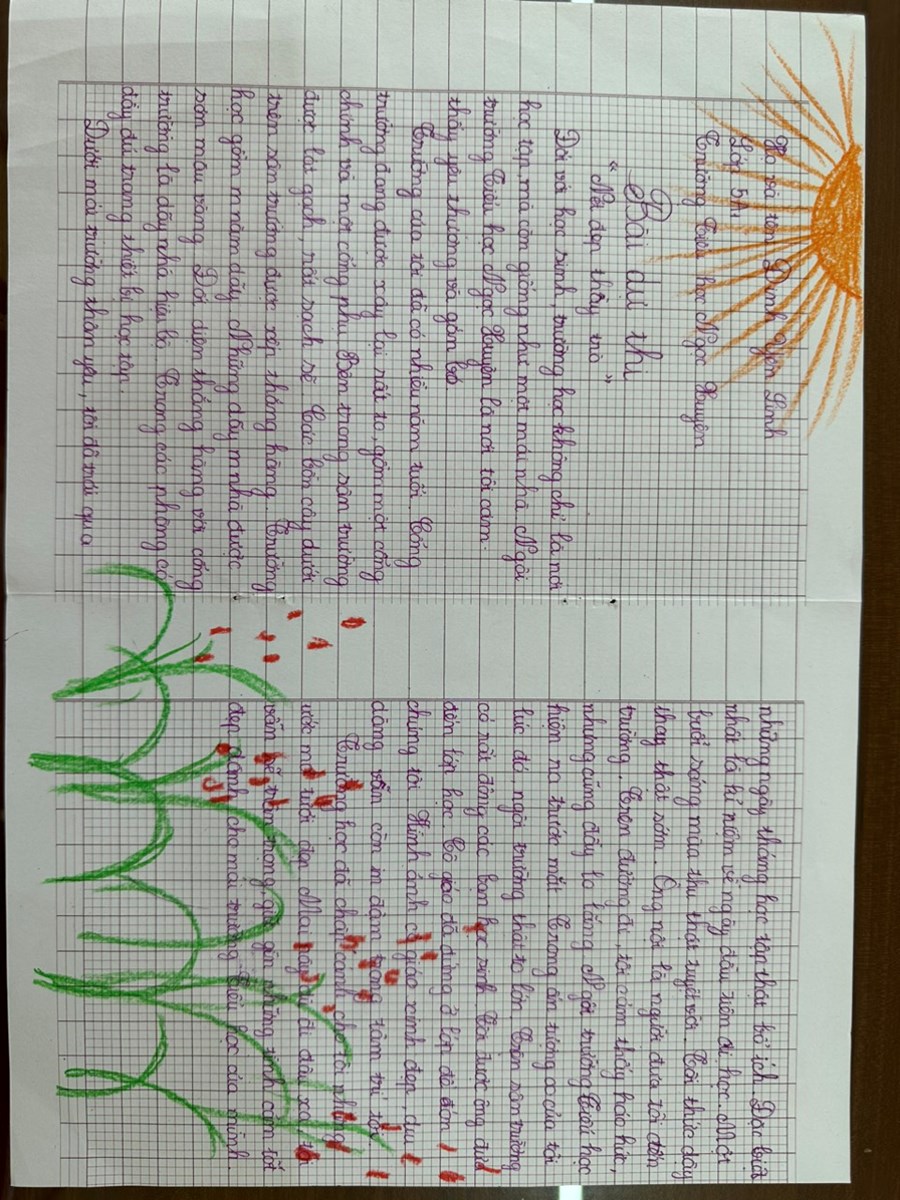 Họ và tên Đinh Yến Linh
Lớp 5A1
Trường Tiểu học Ngọc Xuyên
Bài dự thi
"Nét đẹp thầy trò"
Đối với học sinh, trường học không chỉ là nơi
học tập, mà còn giống như một mái nhà. Ngôi
trường Tiểu học Ngọc Xuyên là nơi tôi cảm
thấy yêu thương và gắn bó
Trường của tôi đã có nhiều năm tuổi. Cổng
trường đang được xây lại rất to, gồm một cổng
chính và một cổng phụ. Bên trong sân trường
được lát gạch, rất sạch sẽ. Các bồn cây dưới
trên sân trường được xếp thẳng hàng. Trường
học gồm m năm dãy. Những dãy m nhà được
sơn màu vàng. Đối diện thẳng hàng với cổng
trường là dãy nhà hiệu bộ. Trong các phòng có
đầy đủ trang thiết bị học tập
Dưới mái trường thân yêu, tôi đã trải qua
những ngày tháng học tập thật bổ ích. Đặc biệt
nhất là kỉ niệm về ngày đầu tiên đi học. Một
buổi sáng mùa thu thật tuyệt vời. Tôi thức dậy
thay thật sớm. Ông nội là người đưa tôi đến
trường. Trên đường đi, tôi cảm thấy háo hức,
nhưng cũng đầy lo lắng. Ngôi trường Tiểu học
hiện ra trước mắt. Trong ấn tượng của của tôi
lúc đó, ngôi trường thật to lớn. Trên sân trường
có rất đông các bạn học sinh. Tôi được ông đưa
đến lớp học. Cô giáo đã đứng ở lớp đó đón
chúng tôi. Hình ảnh cô giáo xinh đẹp, dịu
dàng vẫn còn in đậm trong tâm trí tôi
Trường học đã chắp cánh cho tôi những
ước mơ tươi đẹp. Mai này, dù đi đâu xa, tôi
vẫn sẽ trân trọng, giữ gìn những tình cảm tốt
đẹp dành cho mái trường Tiểu học của mình.